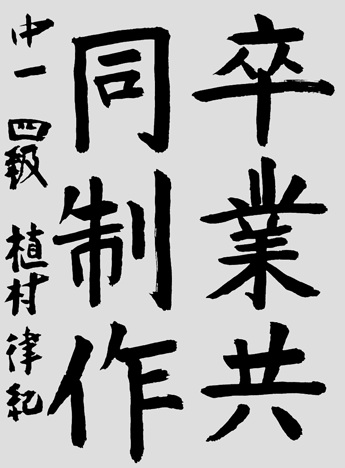 卒業共
同制作
中一 四級 植村律紀